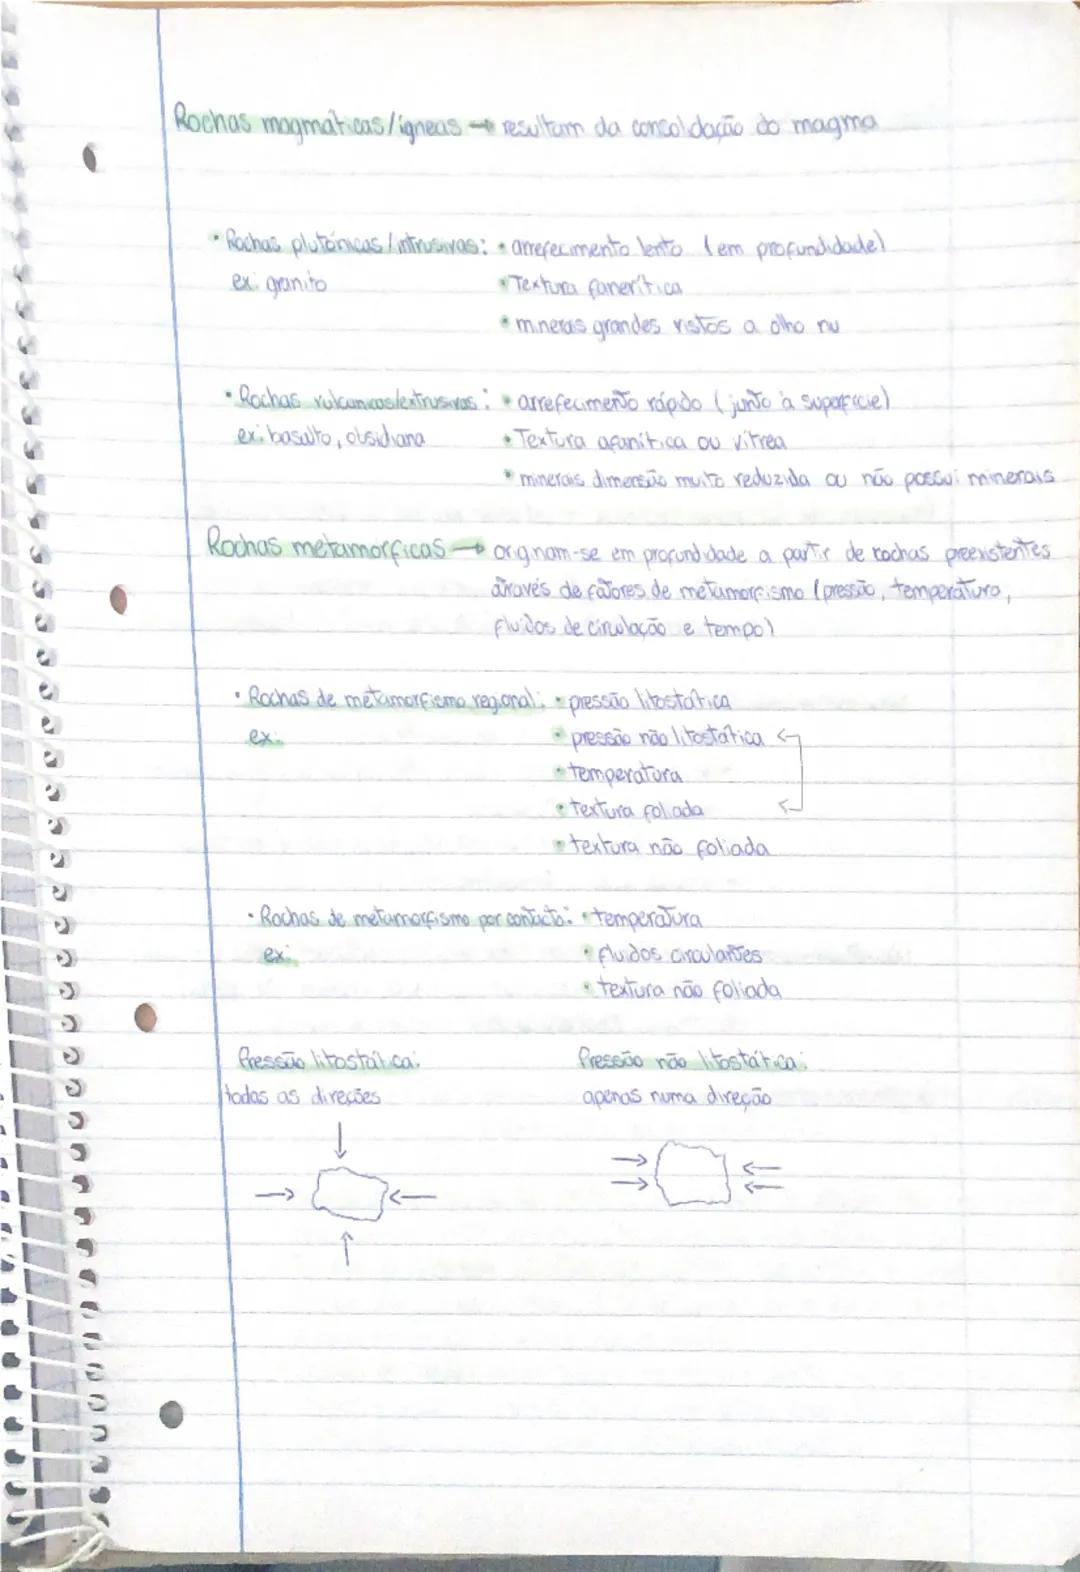 Rochas magmáticas/ígneas → resultam da consolidação do magma
• Rochas plutónicas/intrusivas: • arrefecimento lento (em profundidade)
ex: granito • Textura fanerítica
• minerais grandes vistos a olho nu
• Rochas vulcanicas/extrusivas: • arrefecimento rápido (junto à superfície)
ex: basalto, obsidiana • Textura afanítica ou vítrea
• minerais dimensão muito reduzida ou não possui minerais
Rochas metamórficas → originam-se em profundidade a partir de rochas preexistentes
através de fatores de metamorfismo (pressão, temperatura,
fluidos de circulação e tempo)
• Rochas de metamorfismo regional: • pressão litostática
ex: • pressão não litostática
• temperatura
• textura foliada
• textura não foliada
• Rochas de metamorfismo por contacto: • temperatura
ex: • fluidos circulantes
• textura não foliada
Pressão litostática: Pressão não litostática:
todas as direções apenas numa direção